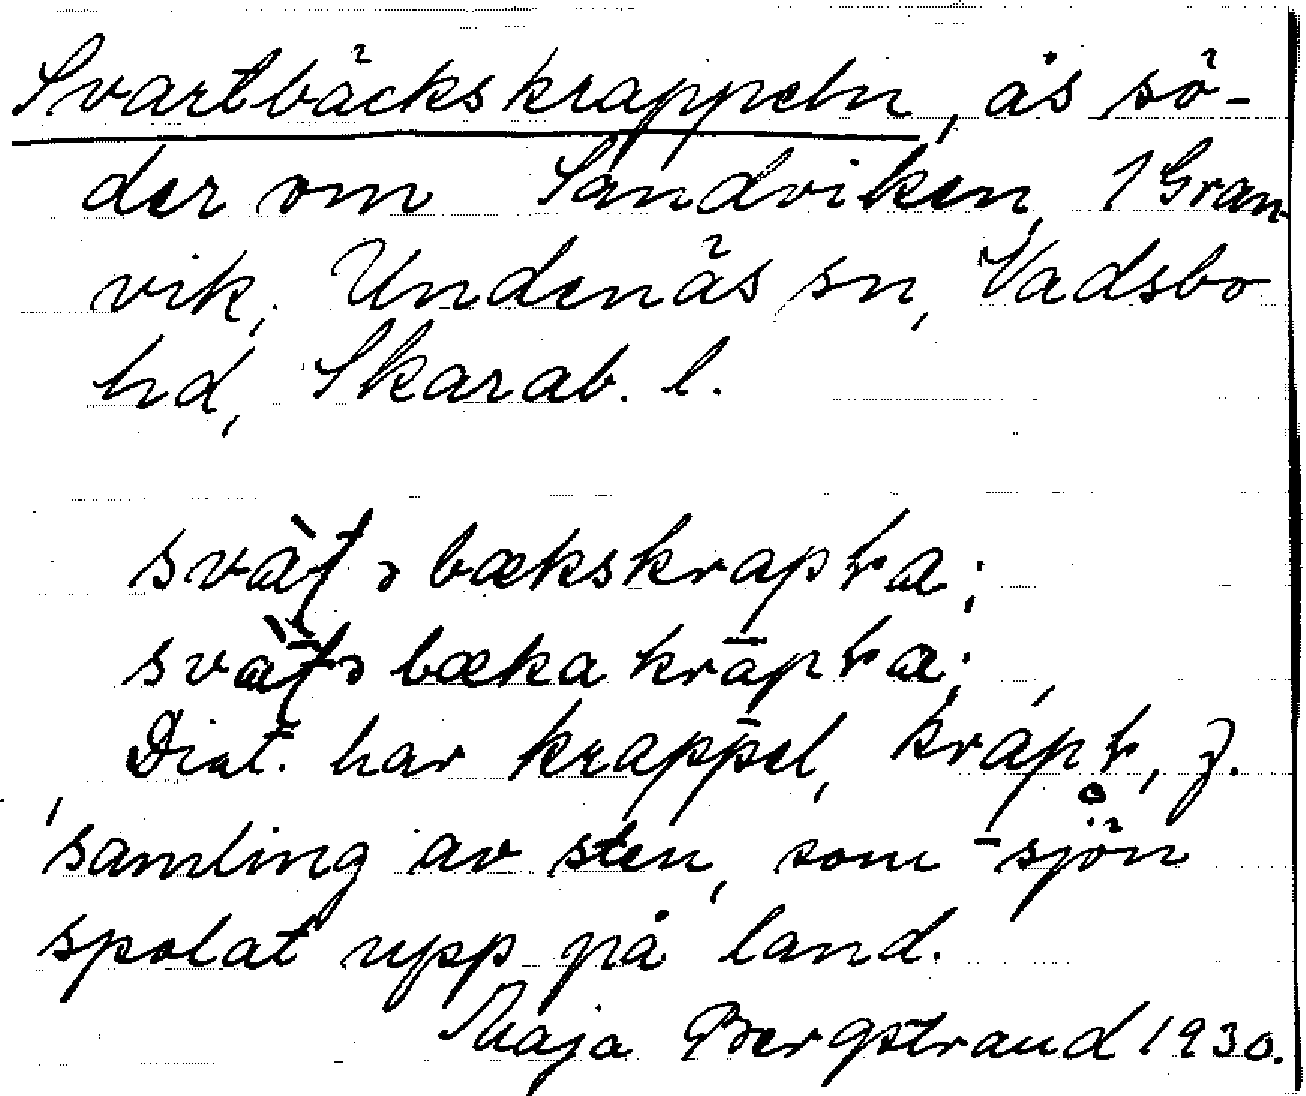 Svartbäckskrappeln, ås sö-
der om Sandviken, 1 Gran-
vik, Undenäs sn, Vadsbo
hd, Skarab. l.
bækskrapƚa;
bækakrapƚa;
Dial. har krappel, krapƚ, f.
samling av sten, som sjön
spolat upp på land.
Maja Bergstrand 1930.